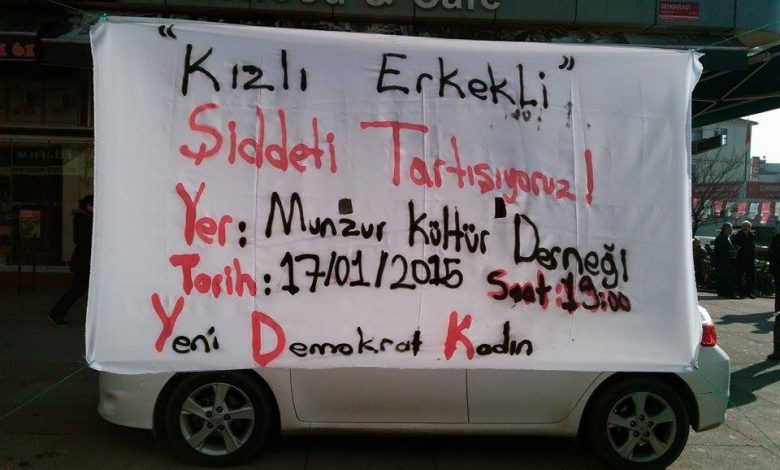 ood & Cafe
DEMOKRASİ
"Kızlı Erkekli"
Şiddeti Tartışıyoruz!
Yer: Munzur Kültür Derneği
Tarih: 17/01/2015 Saat:19:00
Yeni Demokrat Kadın